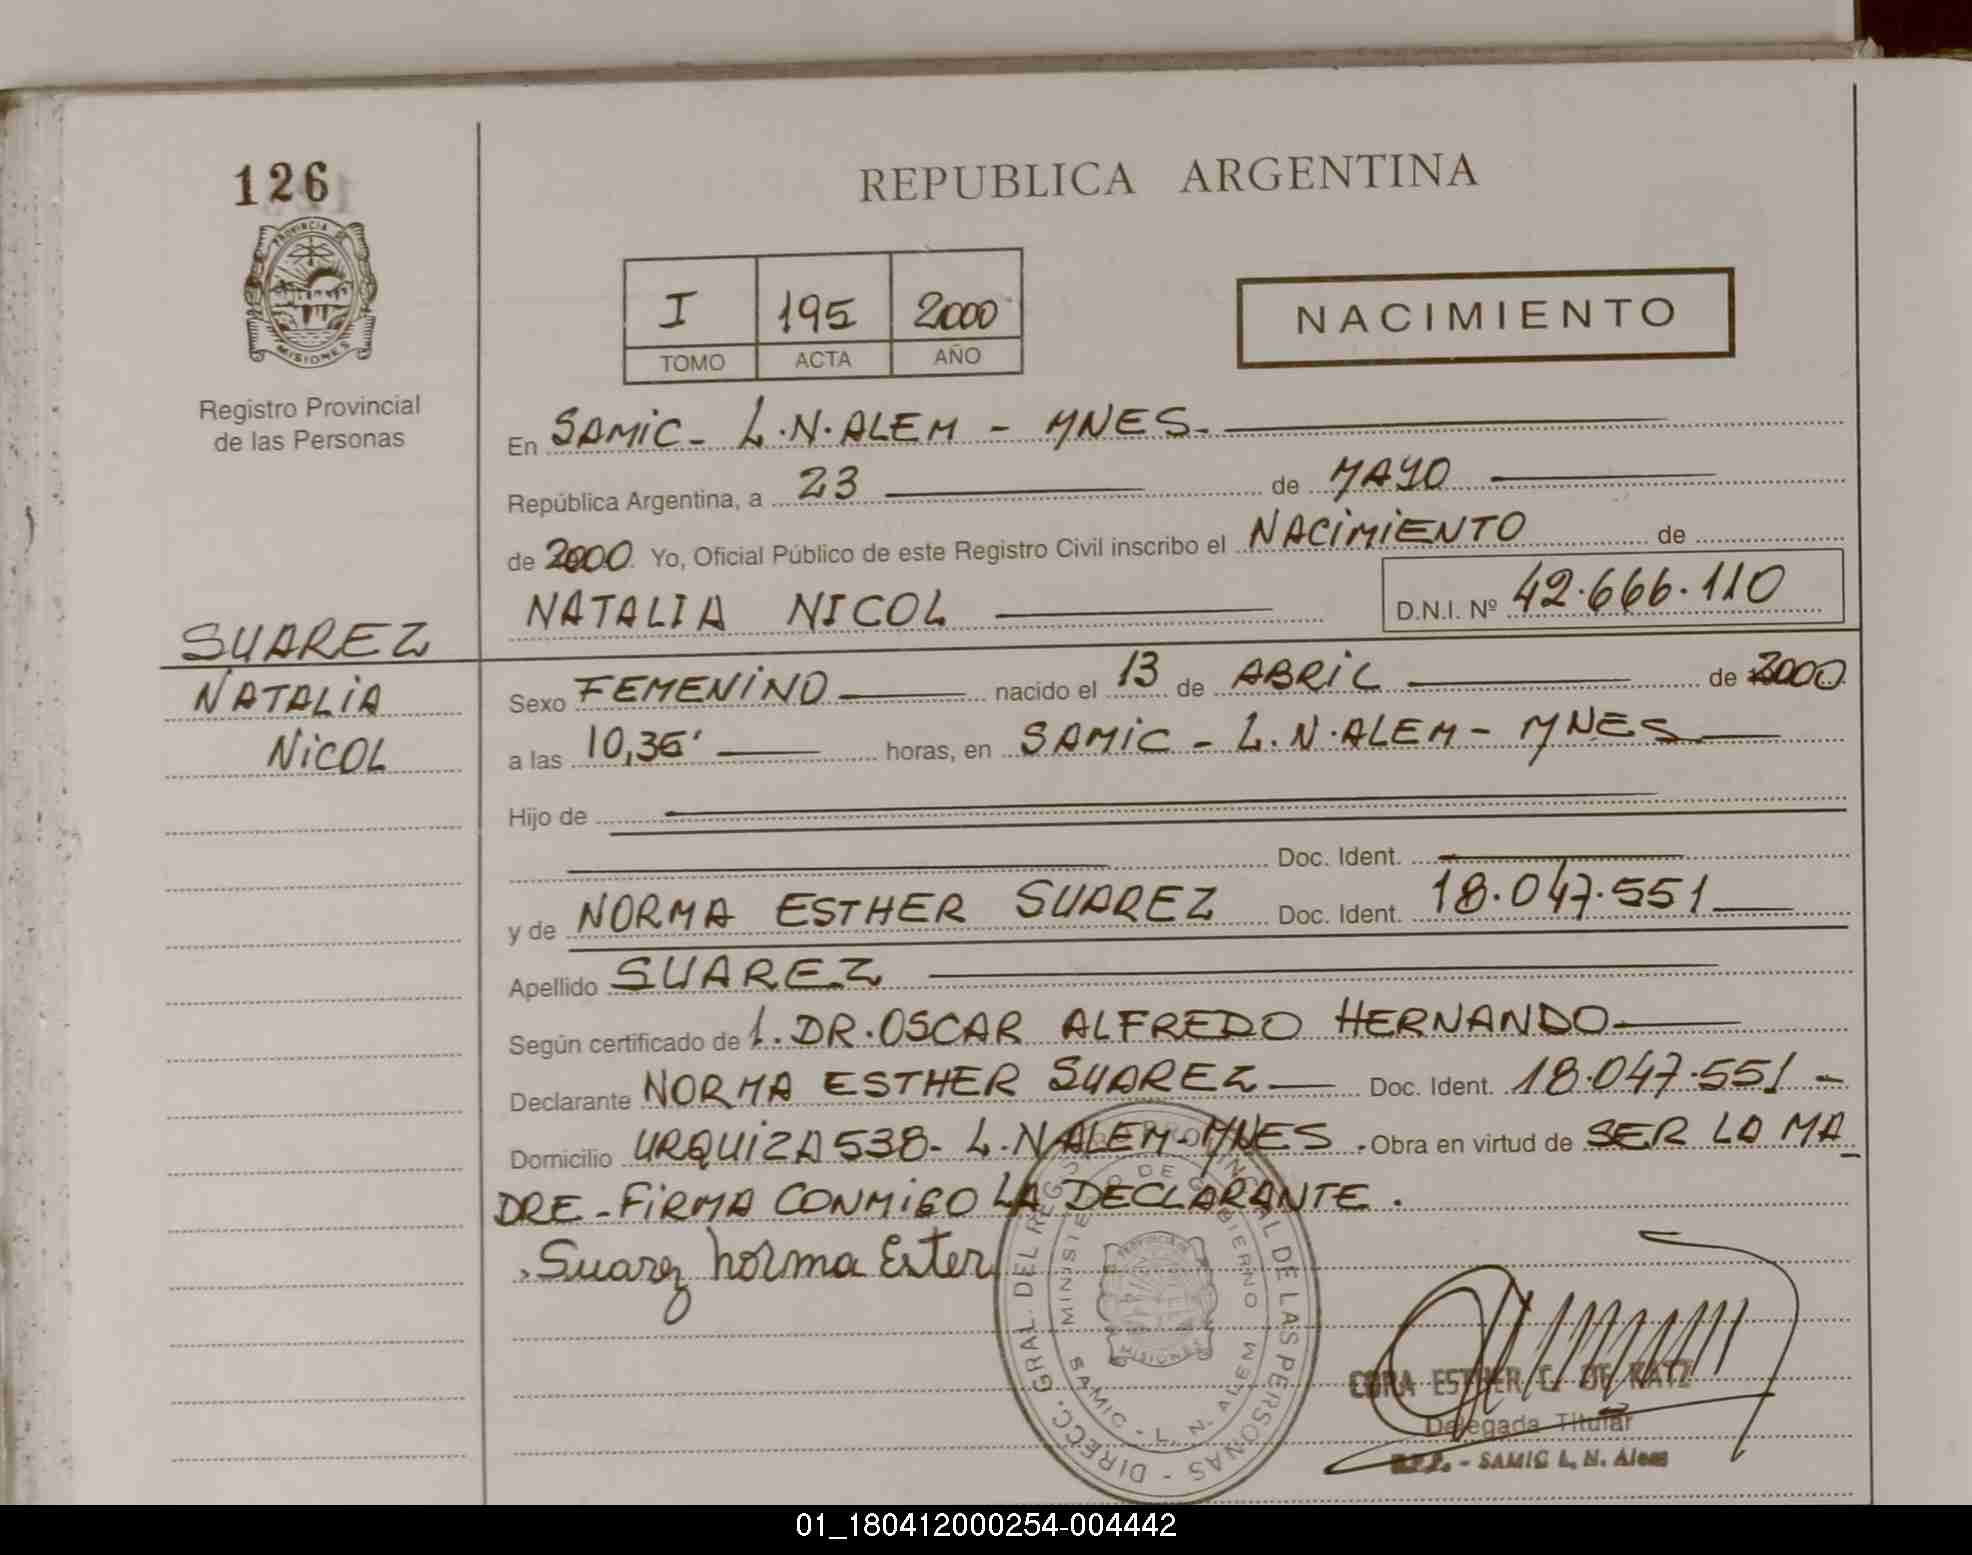 126
PROVINCIA DE
MISIONES
Registro Provincial
de las Personas
SUAREZ
NATALIA
NICOL
REPUBLICA ARGENTINA
I 195 2000
TOMO ACTA AÑO
NACIMIENTO
En SAMIC - L.N. ALEM - MNES.
República Argentina, a 23 de MAYO
de 2000. Yo, Oficial Público de este Registro Civil inscribo el NACIMIENTO de
NATALIA NICOL D.N.I. Nº 42.666.110
Sexo FEMENINO nacido el 13 de ABRIL de 2000
a las 10,35' horas, en SAMIC - L.N. ALEM - MNES
Hijo de
Doc. Ident.
y de NORMA ESTHER SUAREZ Doc. Ident. 18.047.551
Apellido SUAREZ
Según certificado de 1. DR. OSCAR ALFREDO HERNANDO
Declarante NORMA ESTHER SUAREZ Doc. Ident. 18.047.551 -
Domicilio URQUIZA 538 - L.N ALEM - MNES . Obra en virtud de SER LA MA_
DRE - FIRMA CONMIGO LA DECLARANTE.
Suarez Norma Ester
DIRECC. GRAL. DEL REG. PROVINCIAL DE LAS PERSONAS -
MINISTERIO DE GOBIERNO
PROVINCIA DE
MISIONES
SAMIC - L. N. ALEM
CORA ESTHER C. DE KATZ
Delegada Titular
R.P.P. - SAMIC L. N. Alem
01_180412000254-004442